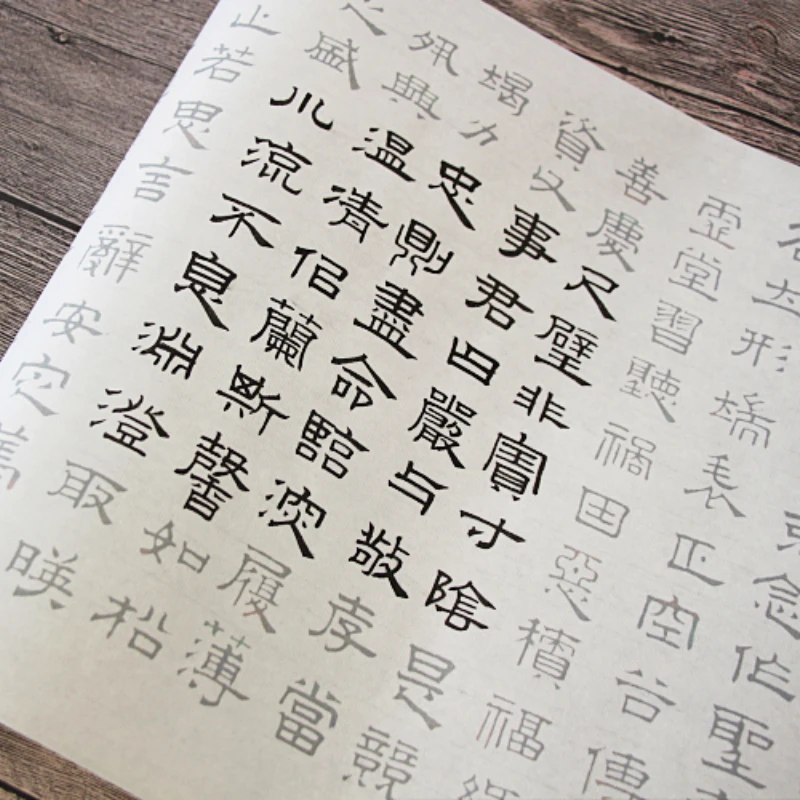 克念作聖
名立形端表正空谷傳
虛堂習聽禍因惡積福緣
善慶尺璧非寶寸陰是競
資父事君曰嚴與敬孝當
竭力忠則盡命臨深履薄
夙興溫凊侣蘭斯馨如松
之盛川流不息淵澄取暎
止若思言辭安定篤